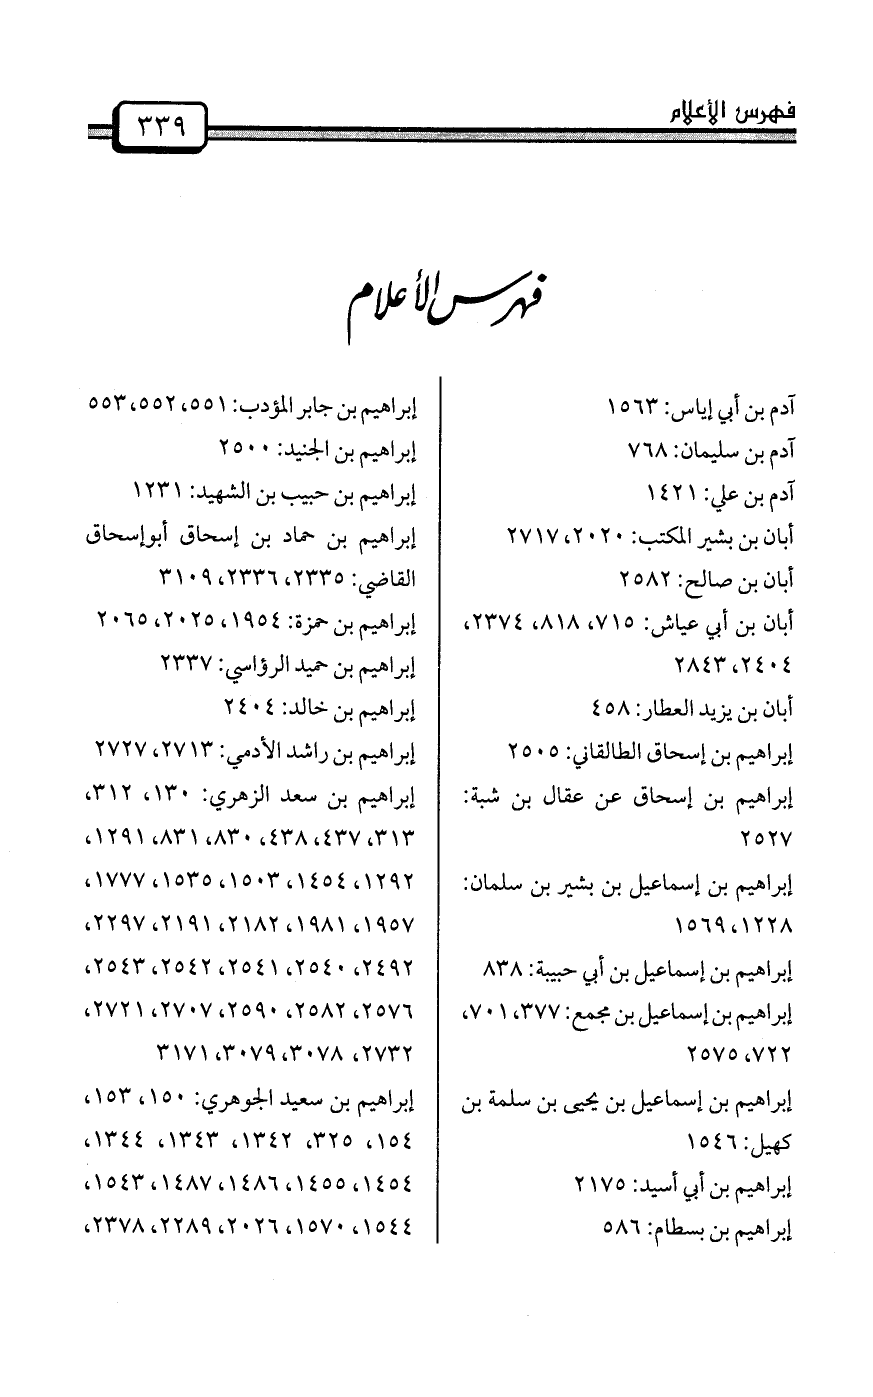 فهرس الأعلام
٣٣٩
فهرس الأعلام
آدم بن أبي إياس: ١٥٦٣
آدم بن سليمان: ٧٦٨
آدم بن علي: ١٤٢١
أبان بن بشير المكتب: ٢٠٢٠، ٢٧١٧
أبان بن صالح: ٢٥٨٢
أبان بن أبي عياش: ٧١٥، ٨١٨، ٢٣٧٤،
٢٤٠٤، ٢٨٤٣
أبان بن يزيد العطار: ٤٥٨
إبراهيم بن إسحاق الطالقاني: ٢٥٠٥
إبراهيم بن إسحاق عن عقال بن شبة:
٢٥٢٧
إبراهيم بن إسماعيل بن بشير بن سلمان:
١٢٢٨، ١٥٦٩
إبراهيم بن إسماعيل بن أبي حبيبة: ٨٣٨
إبراهيم بن إسماعيل بن مجمع: ٣٧٧، ٧٠١،
٧٢٢، ٢٥٧٥
إبراهيم بن إسماعيل بن يحيى بن سلمة بن
كهيل: ١٥٤٦
إبراهيم بن أبي أسيد: ٢١٧٥
إبراهيم بن بسطام: ٥٨٦
إبراهيم بن جابر المؤدب: ٥٥١، ٥٥٢، ٥٥٣
إبراهيم بن الجنيد: ٢٥٠٠
إبراهيم بن حبيب بن الشهيد: ١٢٣١
إبراهيم بن حماد بن إسحاق أبوإسحاق
القاضي: ٢٣٣٥، ٢٣٣٦، ٣١٠٩
إبراهيم بن حمزة: ١٩٥٤، ٢٠٢٥، ٢٠٦٥
إبراهيم بن حميد الرؤاسي: ٢٣٣٧
إبراهيم بن خالد: ٢٤٠٤
إبراهيم بن راشد الأدمي: ٢٧١٣، ٢٧٢٧
إبراهيم بن سعد الزهري: ١٣٠، ٣١٢،
٣١٣، ٤٣٧، ٤٣٨، ٨٣٠، ٨٣١، ١٢٩١،
١٢٩٢، ١٤٥٤، ١٥٠٣، ١٥٣٥، ١٧٧٧،
١٩٥٧، ١٩٨١، ٢١٨٢، ٢١٩١، ٢٢٩٧،
٢٤٩٢، ٢٥٤٠، ٢٥٤١، ٢٥٤٢، ٢٥٤٣،
٢٥٧٦، ٢٥٨٢، ٢٥٩٠، ٢٧٠٧، ٢٧٢١،
٢٧٣٢، ٣٠٧٨، ٣٠٧٩، ٣١٧١
إبراهيم بن سعيد الجوهري: ١٥٠، ١٥٣،
١٥٤، ٣٢٥، ١٣٤٢، ١٣٤٣، ١٣٤٤،
١٤٥٤، ١٤٥٥، ١٤٨٦، ١٤٨٧، ١٥٤٣،
١٥٤٤، ١٥٧٠، ٢٠٢٦، ٢٢٨٩، ٢٣٧٨،